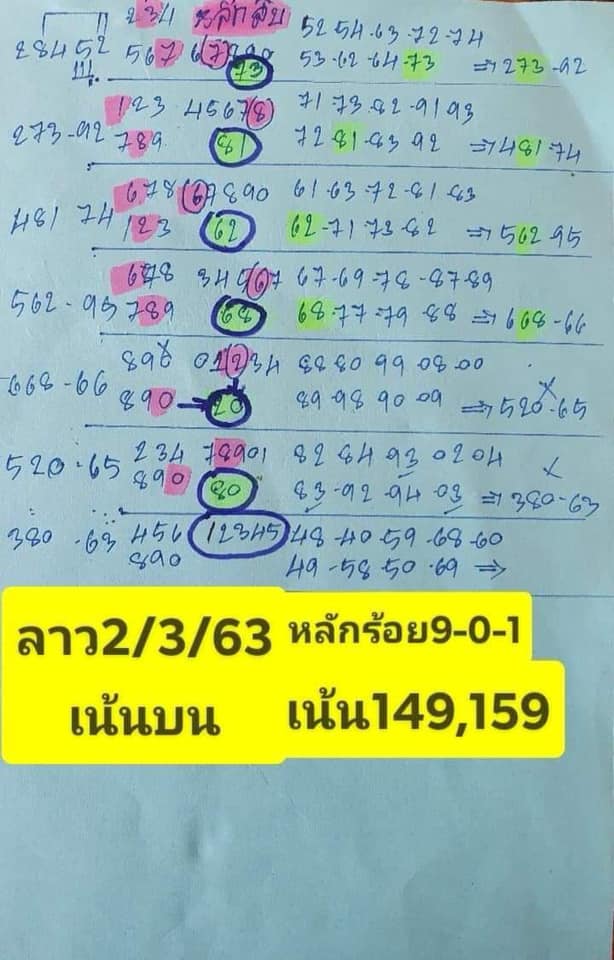 234 หลักสิบ 52 54-63-72-74
28452 567 67890 53-62-64-73 ⇒ 273-92
73
123 45678 71-73-82-91 93
273-92 789 81 72-81-83 92 ⇒ 481 74
678 67890 61-63-72-81-83
481 74 123 62 62-71 73-82 ⇒ 562-95
678 34567 67-69-78-87-89
562-95 789 68 68-77-79-88 ⇒ 668-66
898 01234 88 80 99 08-00
668-66 890 20 89-98 90 09 ⇒ 520-65
234 78901 82 84 93 02 04
520-65 890 80 83-92 94 03 ⇒ 380-63
380-63 456 12345 48-40-59-68-60
890 49-58-50-69 ⇒
ลาว2/3/63 หลักร้อย9-0-1
เน้นบน เน้น149,159